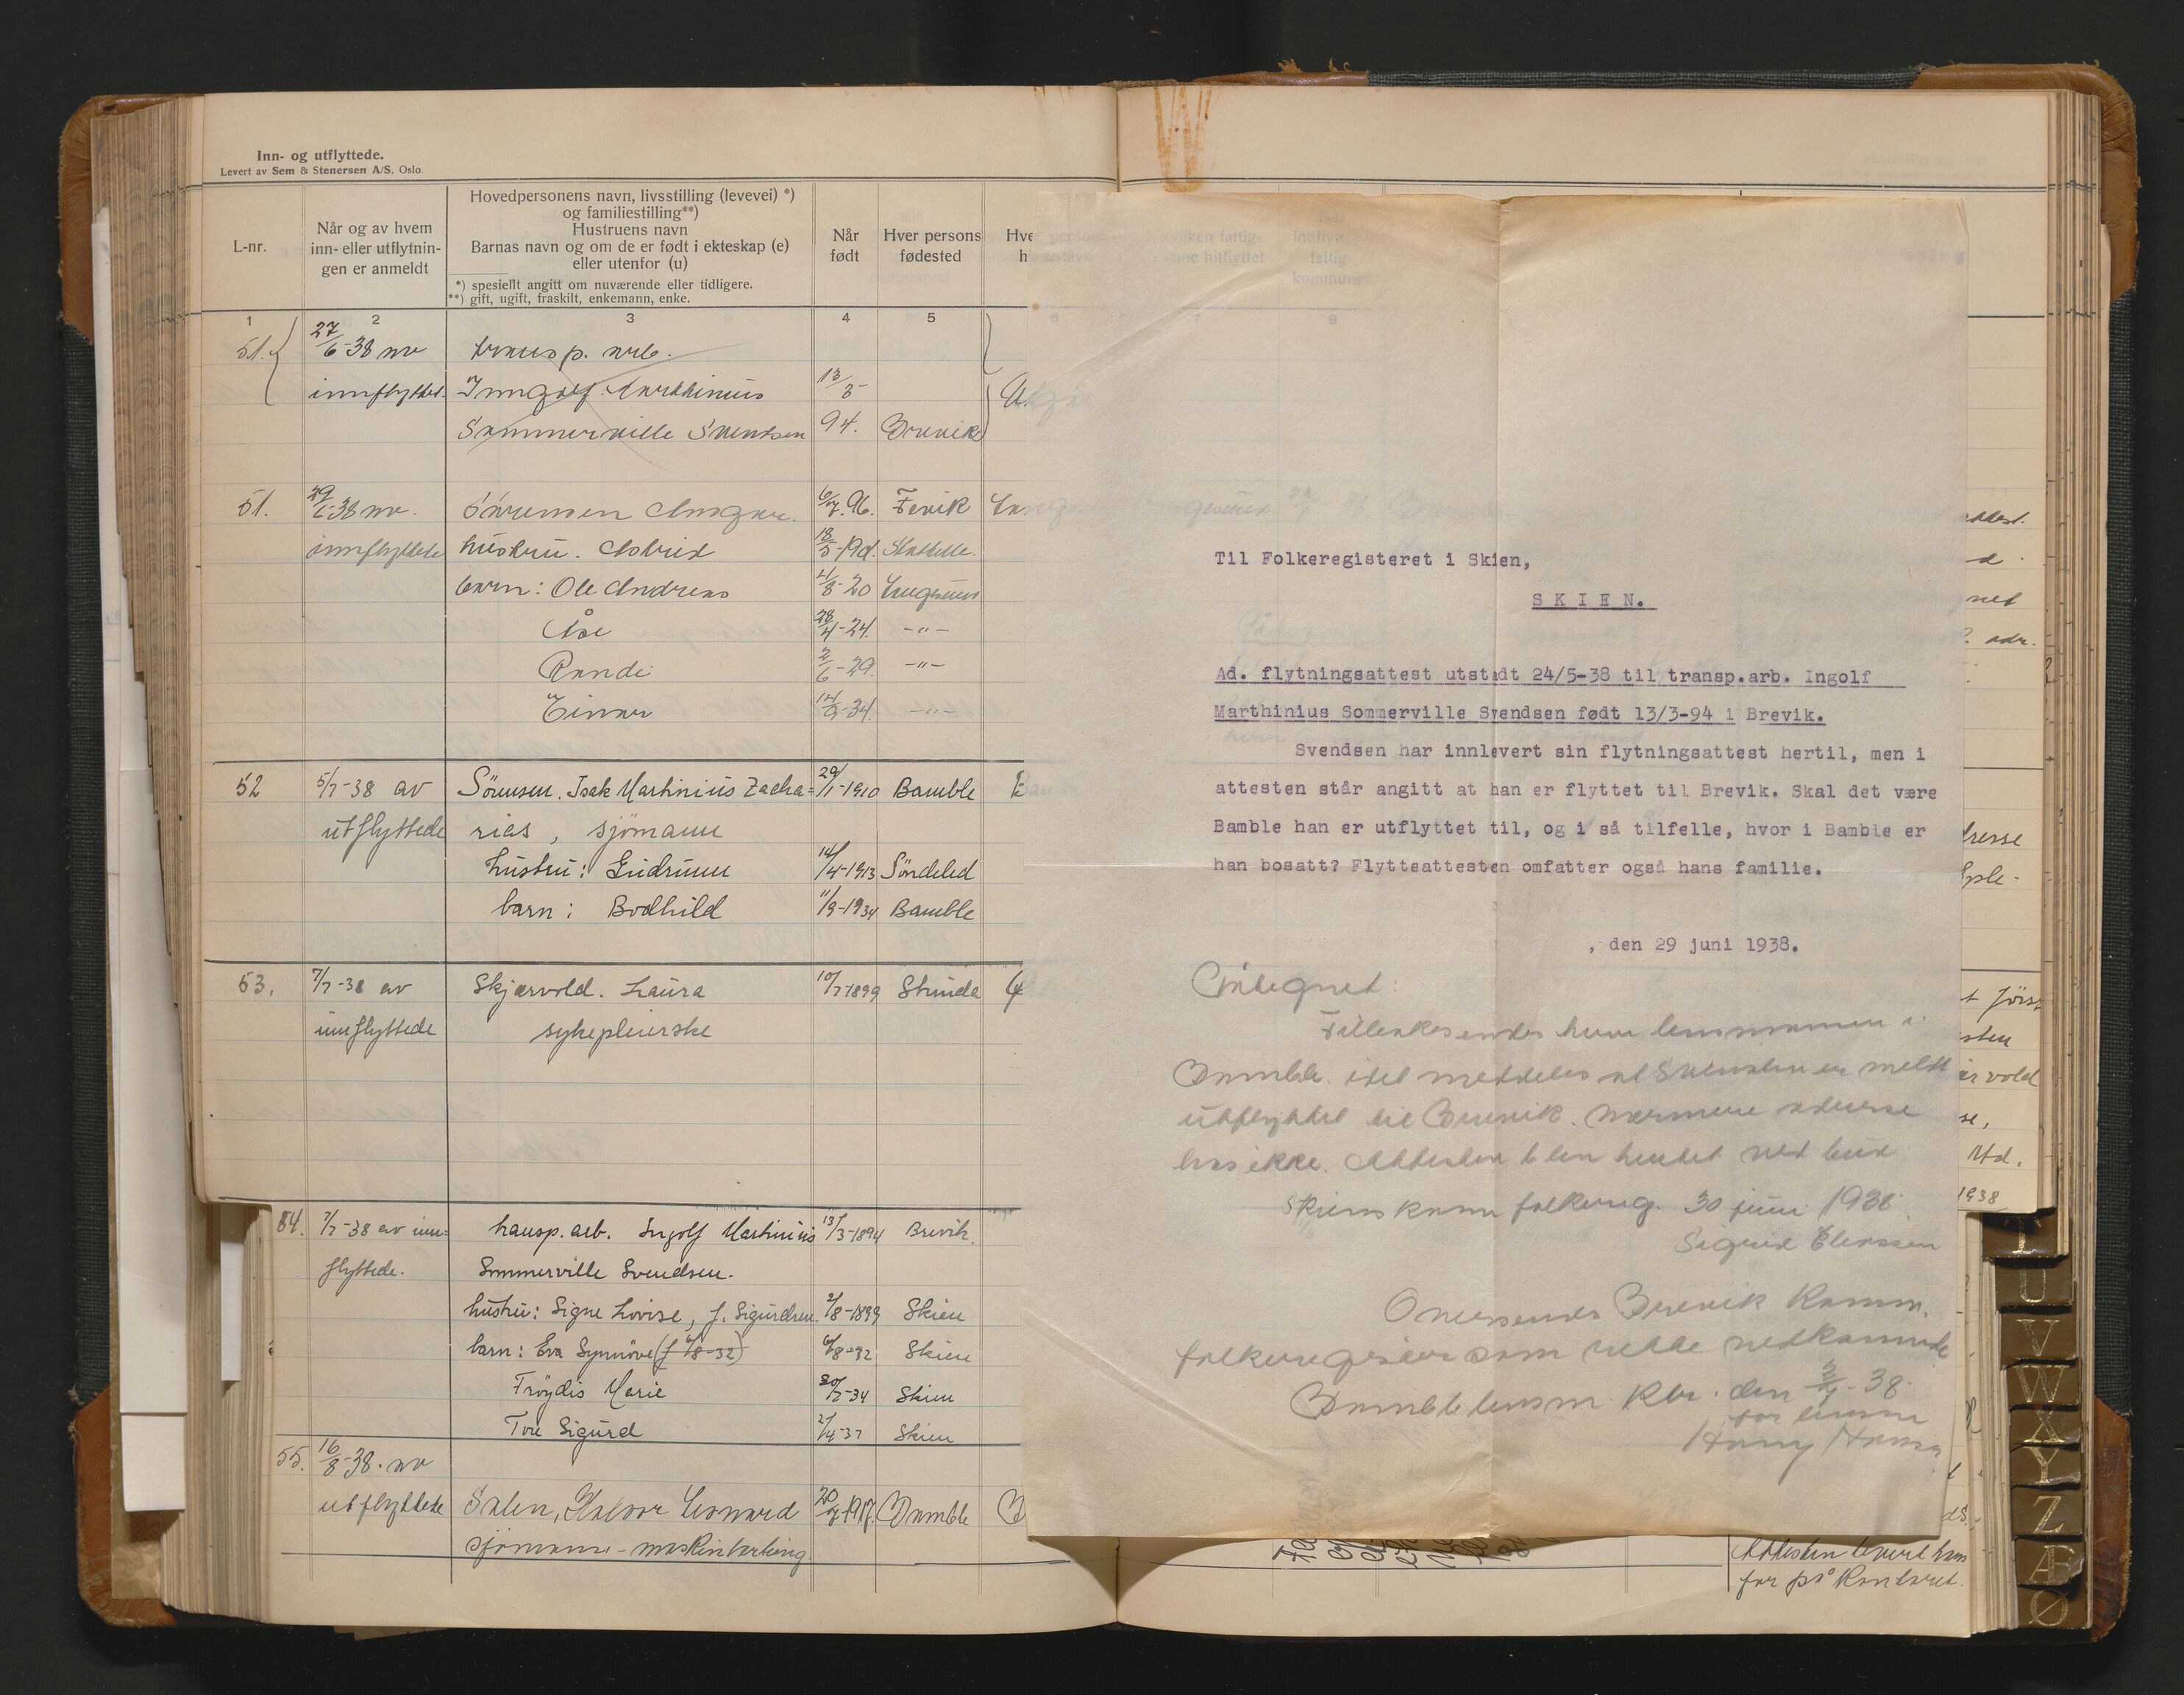 Inn- og utflyttede.
Levert av Sem & Stenersen A/S, Oslo.
L-nr.
Når og av hvem
inn- eller utflytnin-
gen er anmeldt
Hovedpersonens navn, livsstilling (levevei) *)
og familiestilling**)
Hustruens navn
Barnas navn og om de er født i ekteskap (e)
eller utenfor (u)
*) spesiellt angitt om nuværende eller tidligere.
**) gift, ugift, fraskilt, enkemann, enke.
Når
født
Hver persons
fødested
1 2 3 4 5
51. 27/6-38 av transp. arb.
innflyttet. Ingolf Marthinius 13/3-
Sommerville Svendsen 94. Brevik
51. 29/6-38 av. Sørensen Ansgar. 6/7.96. Fevik
innflyttede hustru. Astrid 18/5-19d. Stathelle.
barn: Ole Andreas 21/8-20 Langesund
Åse 28/4-24. -"-
Randi 2/6-29. -"-
Einar 14/9-34. -"-
52 5/7-38 av Sörensen. Isak Martinius Zacha= 29/1-1910 Bamble
utflyttede rias, sjömann
hustru: Gudrunn 14/4-1913 Söndeled
barn: Bodhild 11/9-1934 Bamble
53. 7/7-38 av Skjærvold. Laura 10/7 1899 Strinda
innflyttede sykepleierske
54. 7/7-38 av inn= transp. arb. Ingolf Martinius 13/3-1894 Brevik.
flyttede. Sommerville Svendsen.
hustru: Signe Lovise, f. Sigurdsen. 2/8-1899 Skien
barn: Eva Synnöve (f 6/8-32) 6/8-32 Skien
Fröydis Marie 20/7-34 Skien
Tore Sigurd 21/4-37 Skien
55. 16/8-38. av
utflyttede Salen, Halvor Leonard 20/7-1917. Bamble
sjömann - maskinlærling
Til Folkeregisteret i Skien,
SKIEN.
Ad. flytningsattest utstedt 24/5-38 til transp.arb. Ingolf
Marthinius Sommerville Svendsen født 13/3-94 i Brevik.
Svendsen har innlevert sin flytningsattest hertil, men i
attesten står angitt at han er flyttet til Brevik. Skal det være
Bamble han er utflyttet til, og i så tilfelle, hvor i Bamble er
han bosatt? Flytteattesten omfatter også hans familie.
, den 29 juni 1938.
Påtegnet:
Tilbakesendes herr lensmannen i
Bamble idet meddeles at Svendsen er meldt
utflyttet til Brevik. Nærmere adresse
has ikke. Attesten blev hentet ved bud
Skiens kom folkereg. 30 juni 1938.
Sigrid Eliassen
Oversendes Brevik Komm.
folkeregister som rette vedkommende
Bamble lensm. Ktr. den 2/7-38.
for lensm
Harry Hansen
Attesten levert hans
far på kontoret.
W
X
Y
Z
Æ
Ø
U
V